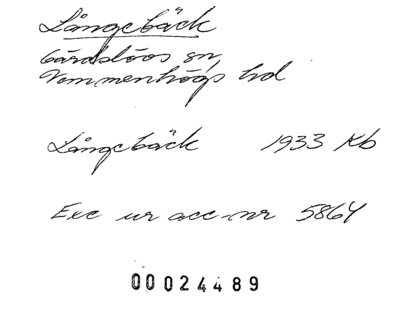 Långebäck
Gärdslövs sn
Vemmenhögs hd
Långebäck 1933 Kb
Exc ur acc-nr 5864
00024489